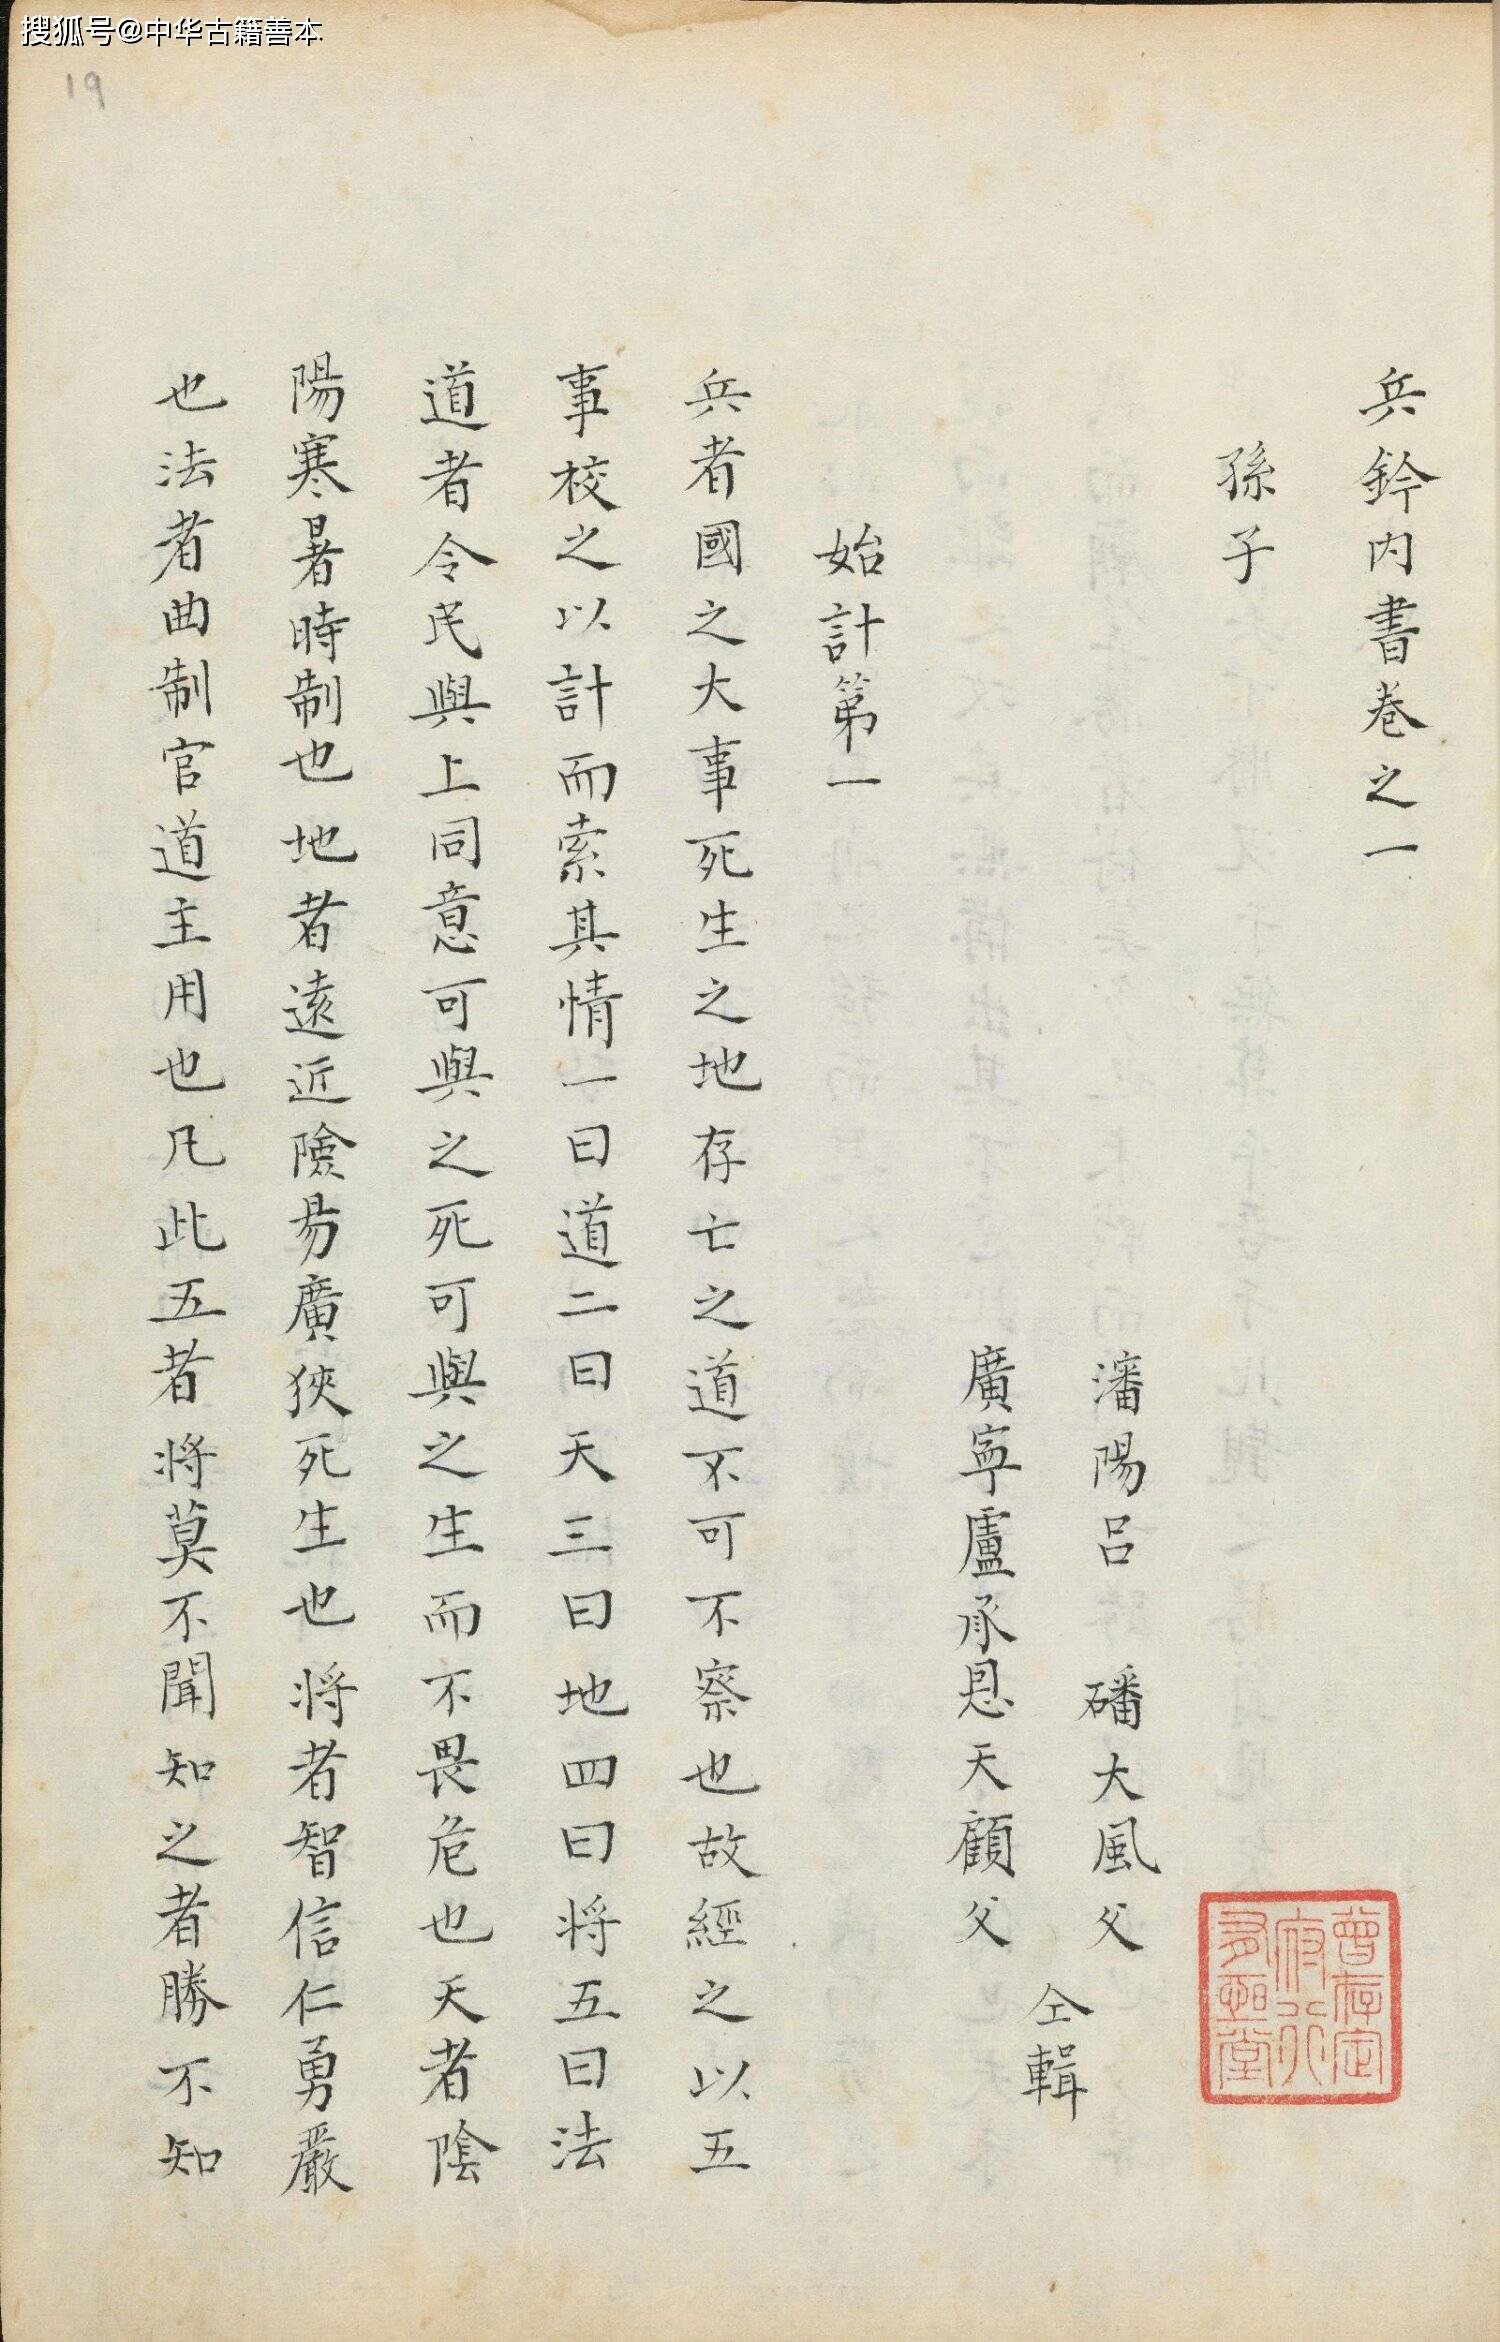 搜狐号@中华古籍善本
19
兵鈐内書卷之一
孫子
瀋陽呂磻大風父
廣寧盧承恩天顧父
仝輯
始計第一
兵者國之大事死生之地存亡之道不可不察也故經之以五
事校之以計而索其情一曰道二曰天三曰地四曰将五曰法
道者令民與上同意可與之死可與之生而不畏危也天者陰
陽寒暑時制也地者遠近險易廣狹死生也将者智信仁勇嚴
也法者曲制官道主用也凡此五者将莫不聞知之者勝不知